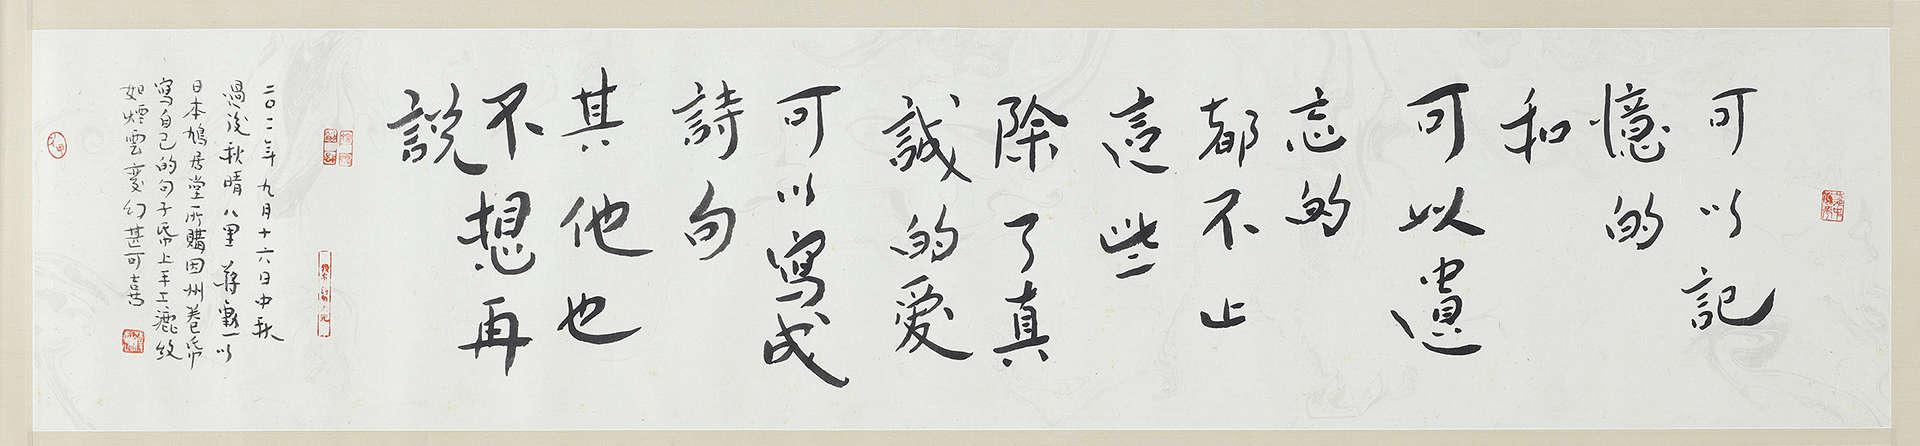 可以記
憶的
和
可以遺
忘的
都不止
這些
除了真
誠的愛
可以寫成
詩句
其他也
不想再
說
二〇二二年九月十六日中秋
過後秋晴八里蔣勳以
日本鳩居堂所購因州卷帋
寫自己的句子帋上手工漉紋
如煙雲變幻甚可喜